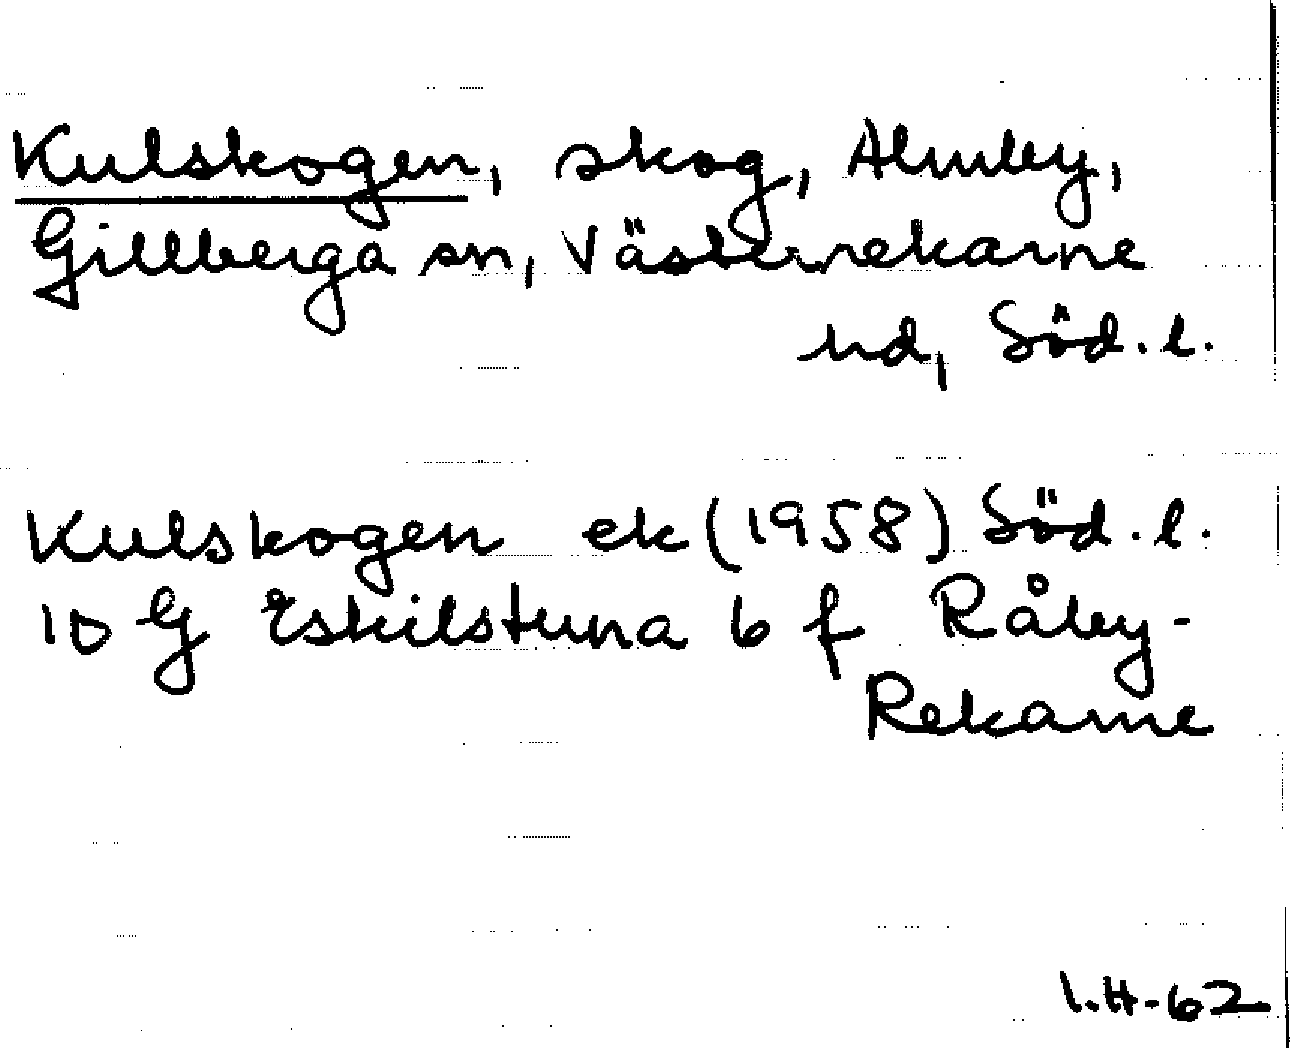 Kulskogen, skog, Almby,
Gillberga sn, Västerrekarne
hd, Söd.l.
Kulskogen ek (1958) Söd.l.
10 G Eskilstuna 6 f Råby-
Rekarne
I.H-62